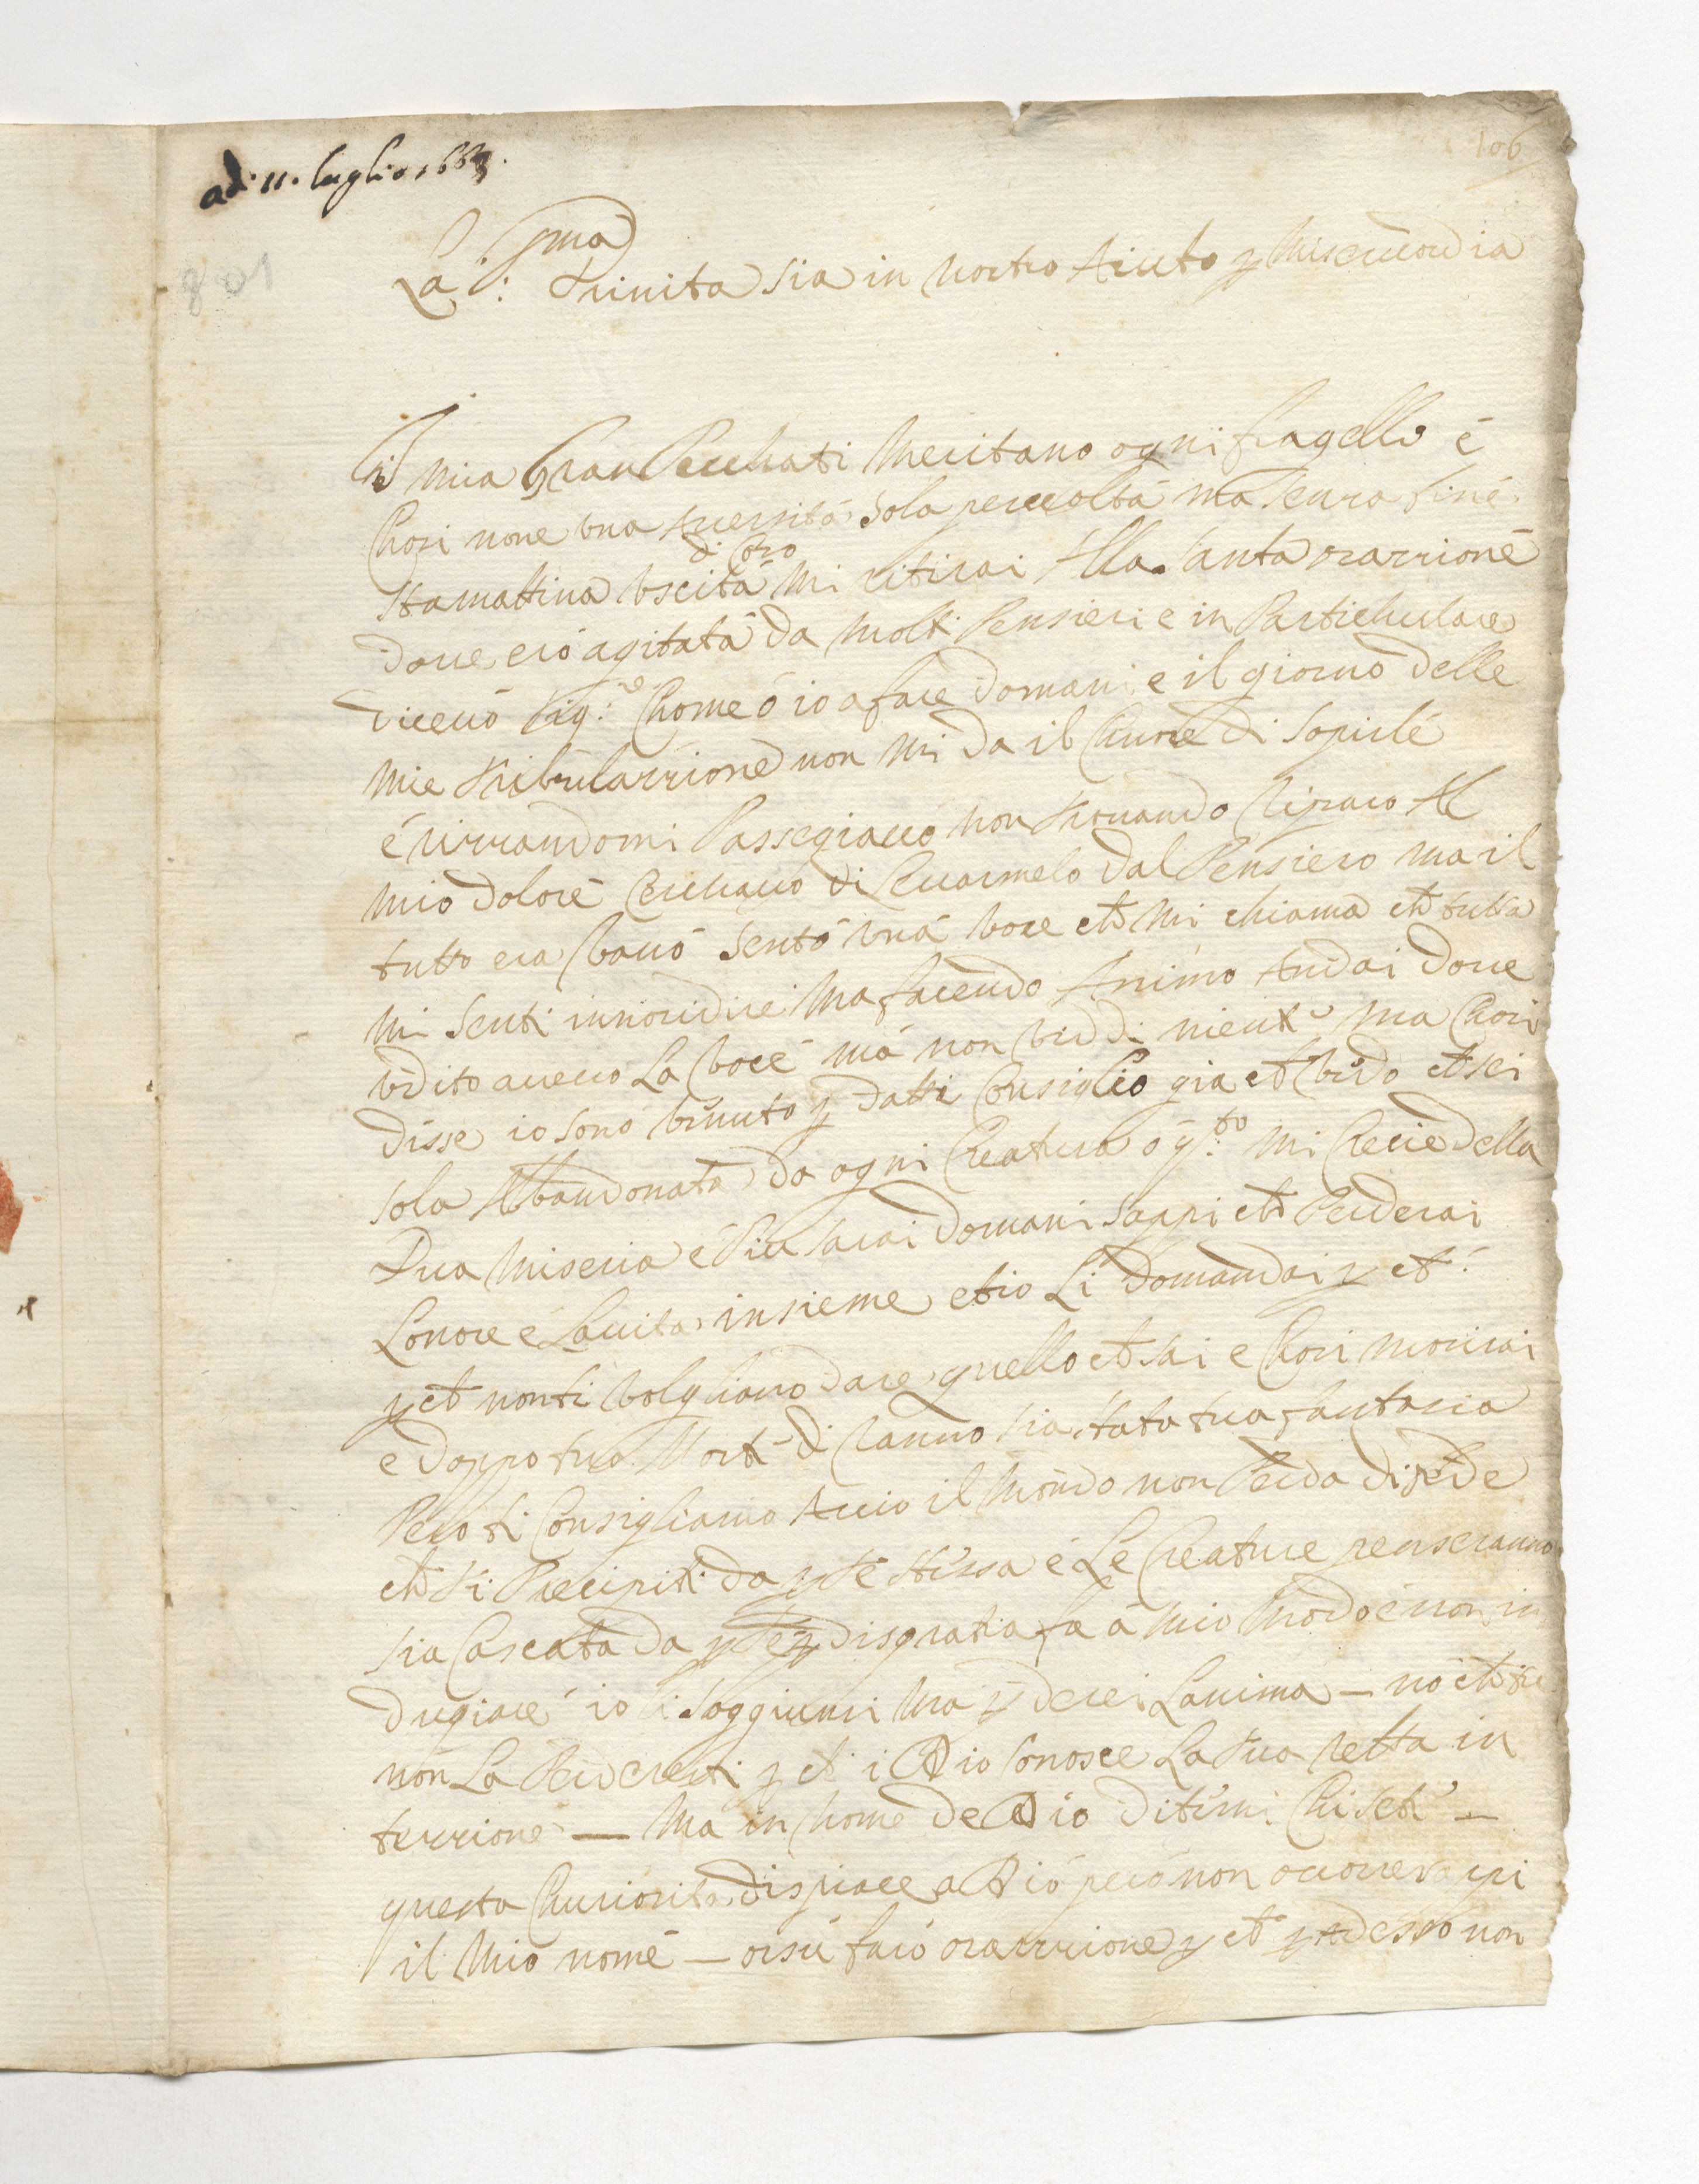 106
ad: 11. luglio 1663.
801
La S:sma Trinita sia in nostro Aiuto p Misericordia
Ii mia Gran Pecchati Meritano ogni fragello é
Chosi none una Aversità sola perccoltà ma senza finé
Stamattina Uscità di Choro mi ritirai Alla Santa orarrioné
doue eró agitatà da molti Pensieri e in Partichulare
diceuó Sig:re Chome ó io a fare domani e il giorno delle
mie tribularrione non mi da il Chuore di
é rirrandomi Passegiauo non trouando riparo Al
mio doloré Cerchauo di Leuarmelo dal Pensiero ma il
tutto era Vanó Sentó Vná Voce ch mi chiama ch tutta
mi Senti innoridire ma facendo Animo Andai doue
Vdito aueuo La Vocé má non Viddi niente ma Chosi
disse io Sonó Vinuto p datti Consiglio gia ch Vedo ch sei
sola Abandonata da ogni Creatura ó q:to mi Crecie della
Tua Miseria é Piu Sarai domani Sappi ch Perderai
Lonore é Lauita insieme ch io Li domandai p ch:
p ch non ti Volgliano dare quello ch sai e Chosi morirai
e doppo tua Morte di ranno sia stata tua fantasia
Peró ti Consigliamo Accio il Mondo non Perda di fede
ch ti Precipiti da p té Stissa é Le Creature penseranno
sia Cascata da p té p disgratia fa á Mio Modo é non in
dugiaré io Li Soggiunsi Ma p derei Lanima — no ch tu
nón La Perderesti p ch i Dio Conosce La tua retta in
terrione — Ma in nome de Dio ditimi Chi Sete —
questa Churiosita dispiace a Dió peró non ocorre sapi
il Mió nomé — orsú faró orarrione p ch p Adesso non